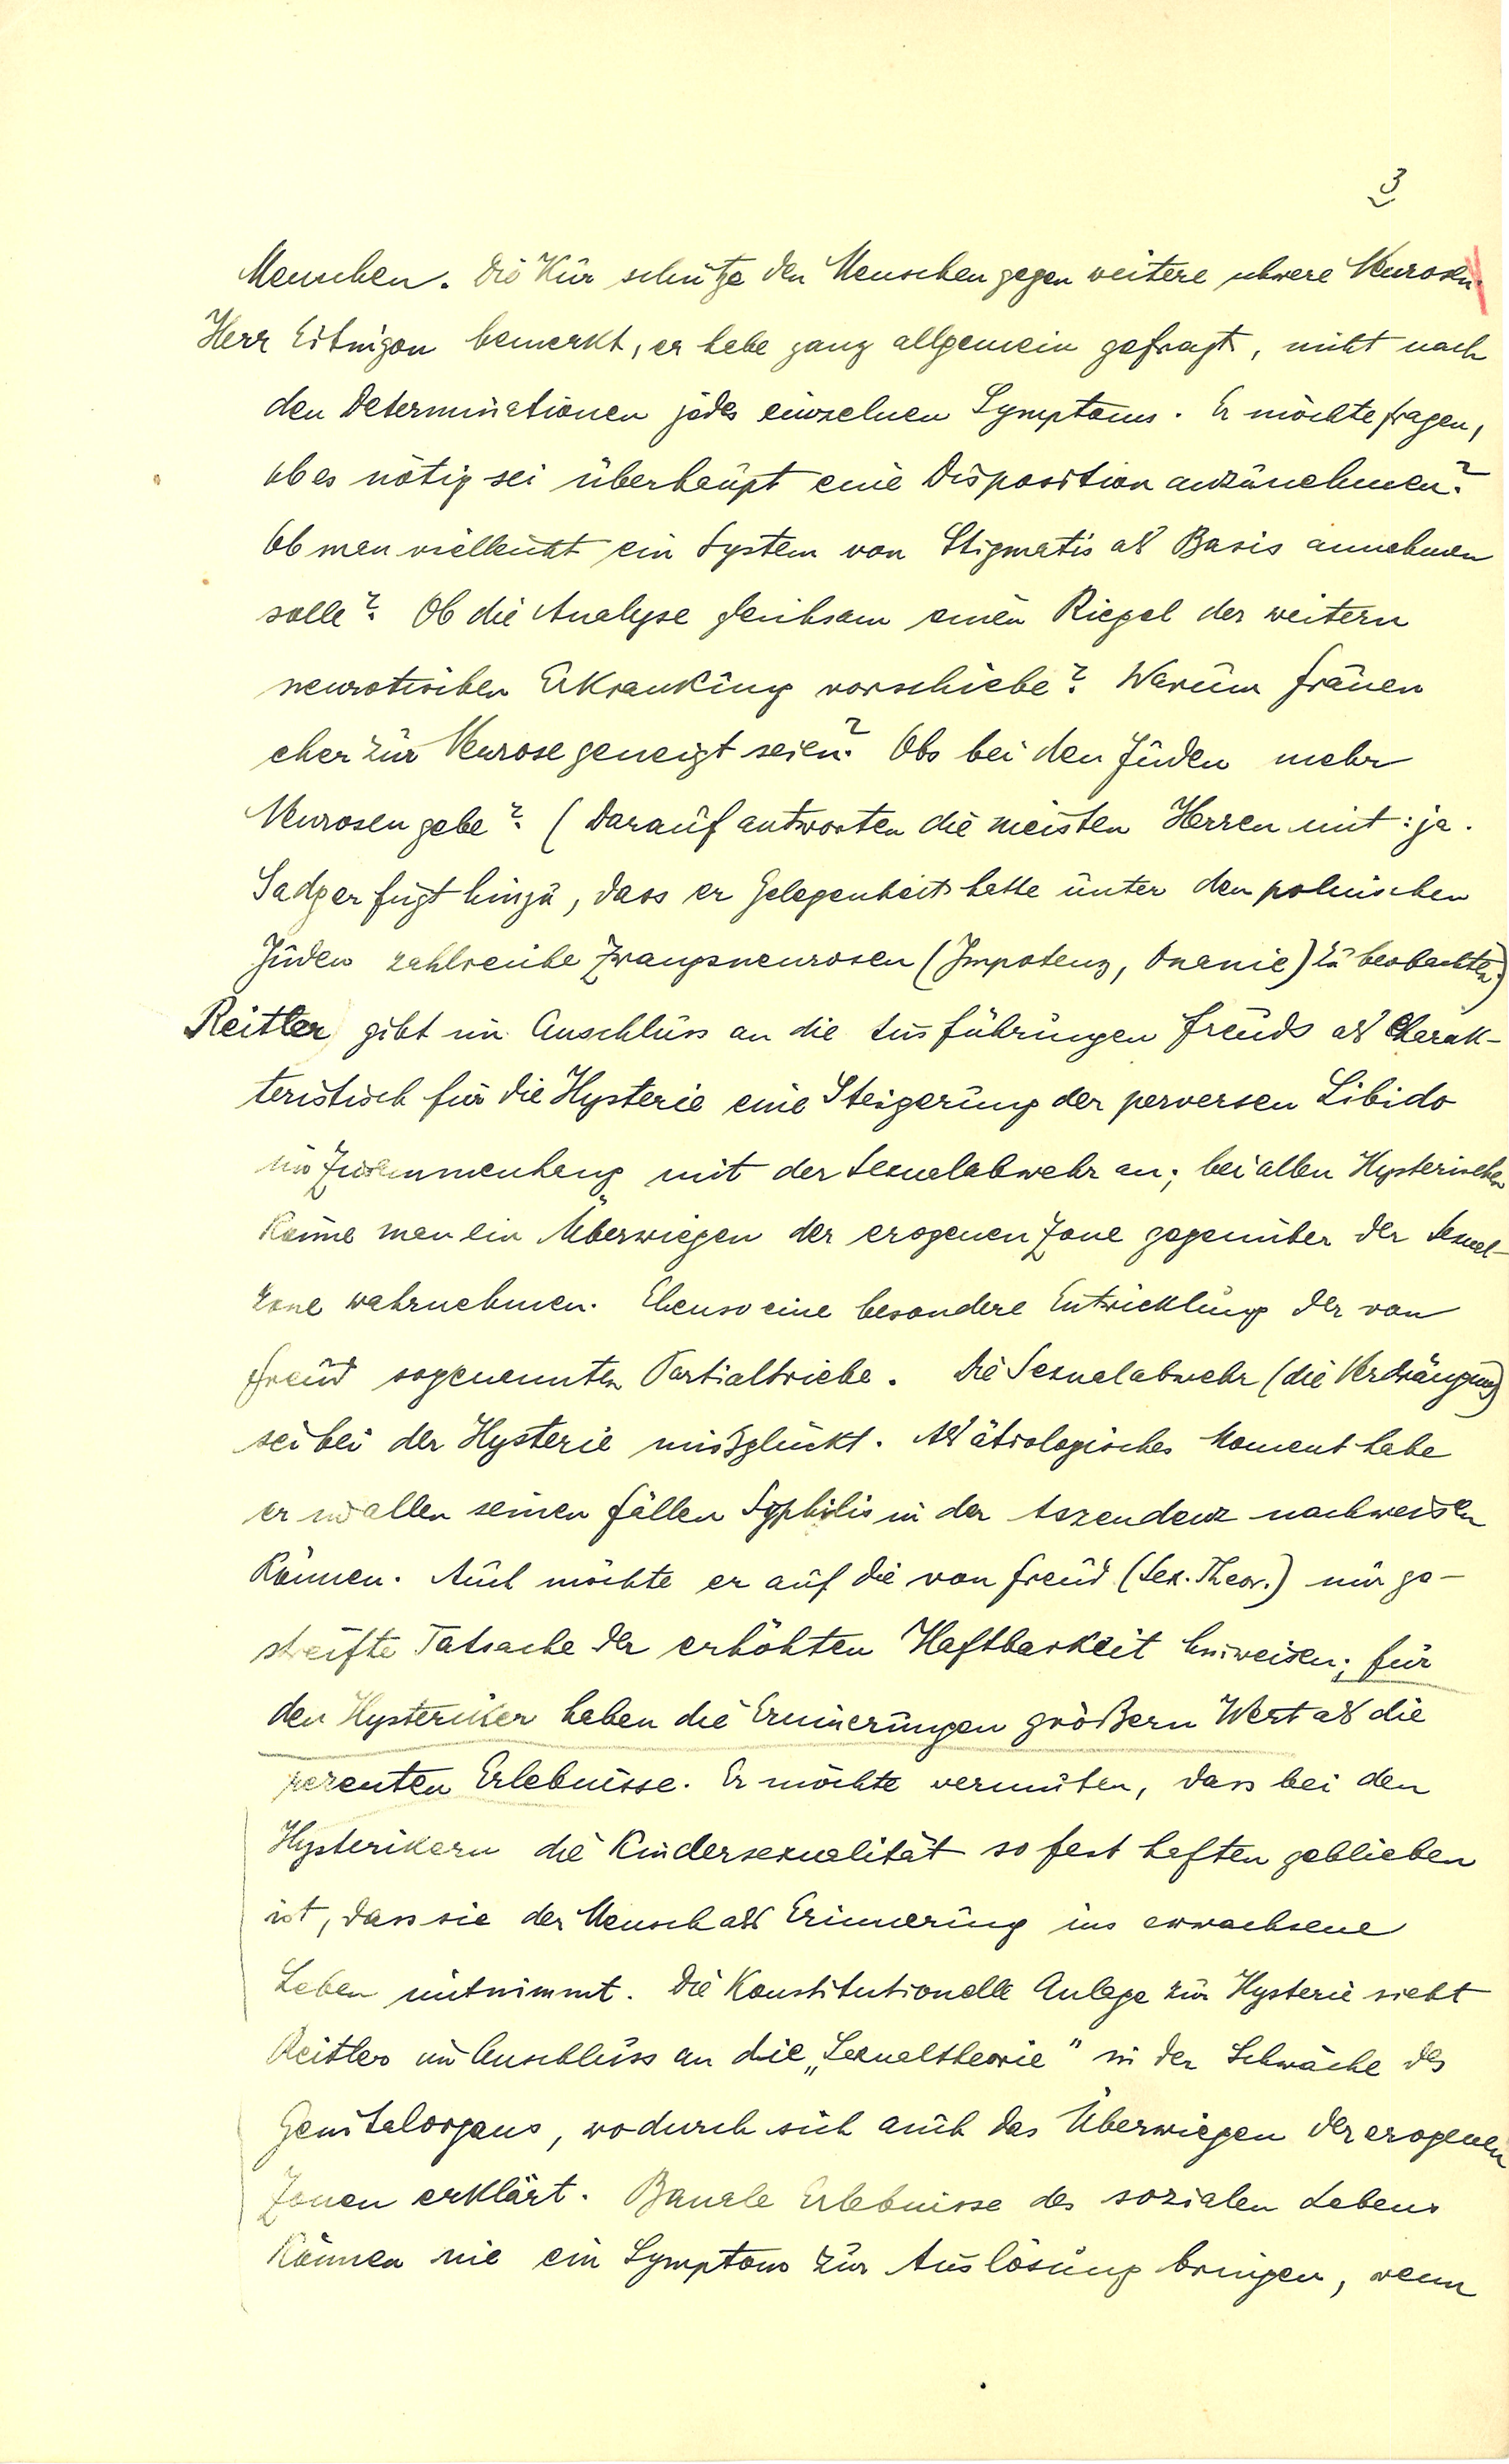 3
Menschen. Die Kur schütze den Menschen gegen weitere schwere Neurosen.
Herr Eitnigon bemerkt, er habe ganz allgemein gefragt, nicht nach
den Determinationen jedes einzelnen Symptoms. Er möchte fragen,
ob es nötig sei überhaupt eine Disposition anzunehmen?
Ob man vielleicht ein System von Stigmatis als Basis annehmen
solle? Ob die Analyse gleichsam einen Riegel der weitern
neurotischen Erkrankung vorschiebe? Warum Frauen
eher zur Neurose geneigt seien? Obs bei den Juden mehr
Neurosen gebe? (Darauf antworten die meisten Herren mit: ja.
Sadger fügt hinzu, dass er Gelegenheit hatte unter den polnischen
Juden zahlreiche Zwangsneurosen (Impotenz, Onanie) zu beobachten.)
Reitler gibt im Anschluss an die Ausführungen Freuds als Charak-
teristisch für die Hysterie eine Steigerung der perversen Libido
im Zusammenhang mit der Sexualabwehr an; bei allen Hysterischen
könne man ein Überwiegen der erogenen Zone gegenüber der Sexual-
zone wahrnehmen. Ebenso eine besondere Entwicklung der von
Freud sogenannten Partialtriebe. Die Sexualabwehr (die Verdrängung)
sei bei der Hysterie mißglückt. Als ätiologisches Moment habe
er in allen seinen Fällen Syphilis in der Aszendenz nachweisen
können. Auch möchte er auf die von Freud (Sex. Theor.) nur ge-
streifte Tatsache der erhöhten Haftbarkeit hinweisen; für
den Hysteriker haben die Erinnerungen größern Wert als die
rezenten Erlebnisse. Er möchte vermuten, dass bei den
Hysterikern die Kindersexualität so fest haften geblieben
ist, dass sie der Mensch als Erinnerung ins erwachsene
Leben mitnimmt. Die Konstitutionelle Anlage zur Hysterie sieht
Reitler im Anschluss an die „Sexualtheorie" in der Schwäche des
Genitalorgans, wodurch sich auch das Überwiegen der erogenen
Zonen erklärt. Banale Erlebnisse des sozialen Lebens
können nie ein Symptom zur Auslösung bringen, wenn